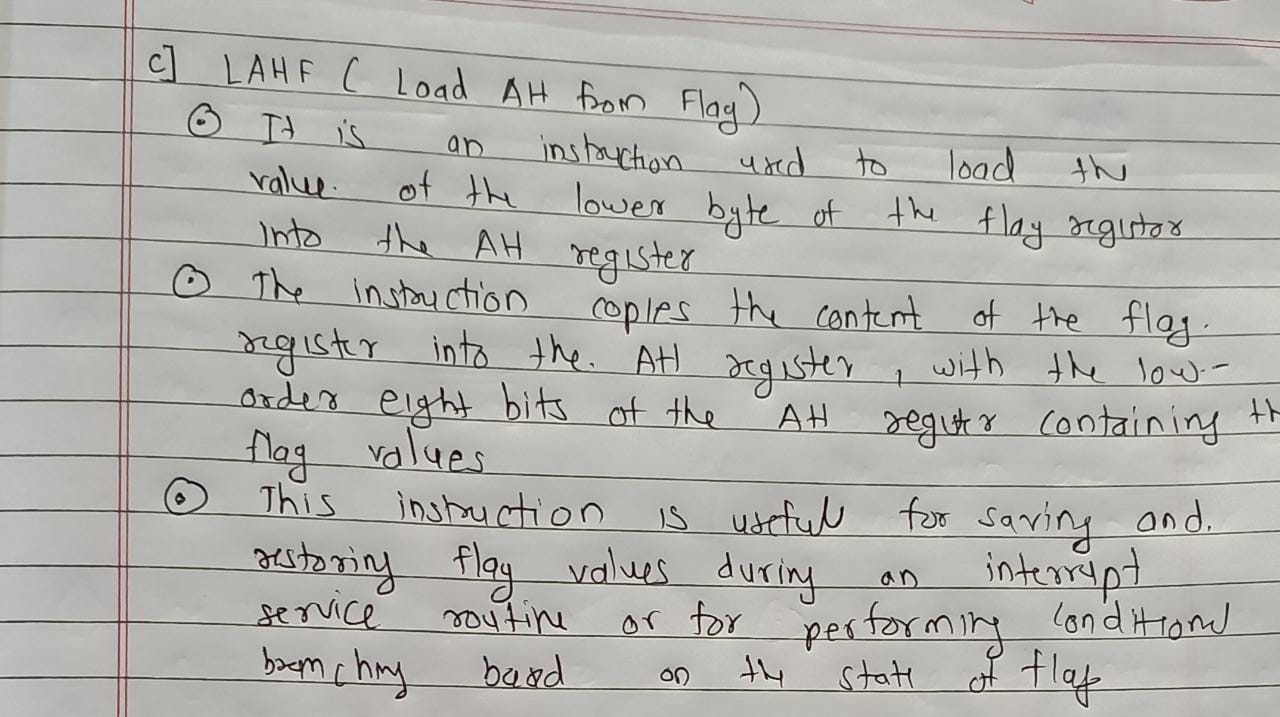 c] LAHF ( Load AH from Flag)
⊙ It is an instruction used to load the
value. of the lower byte of the flag registor
into the AH register
⊙ The instruction copies the content of the flag.
register into the. AH register, with the low-
order eight bits of the AH register containing th
flag values
⊙ This instruction is useful for saving and.
restoring flag values during an interrupt
service routine or for performing conditional
bramching based on the state of flag